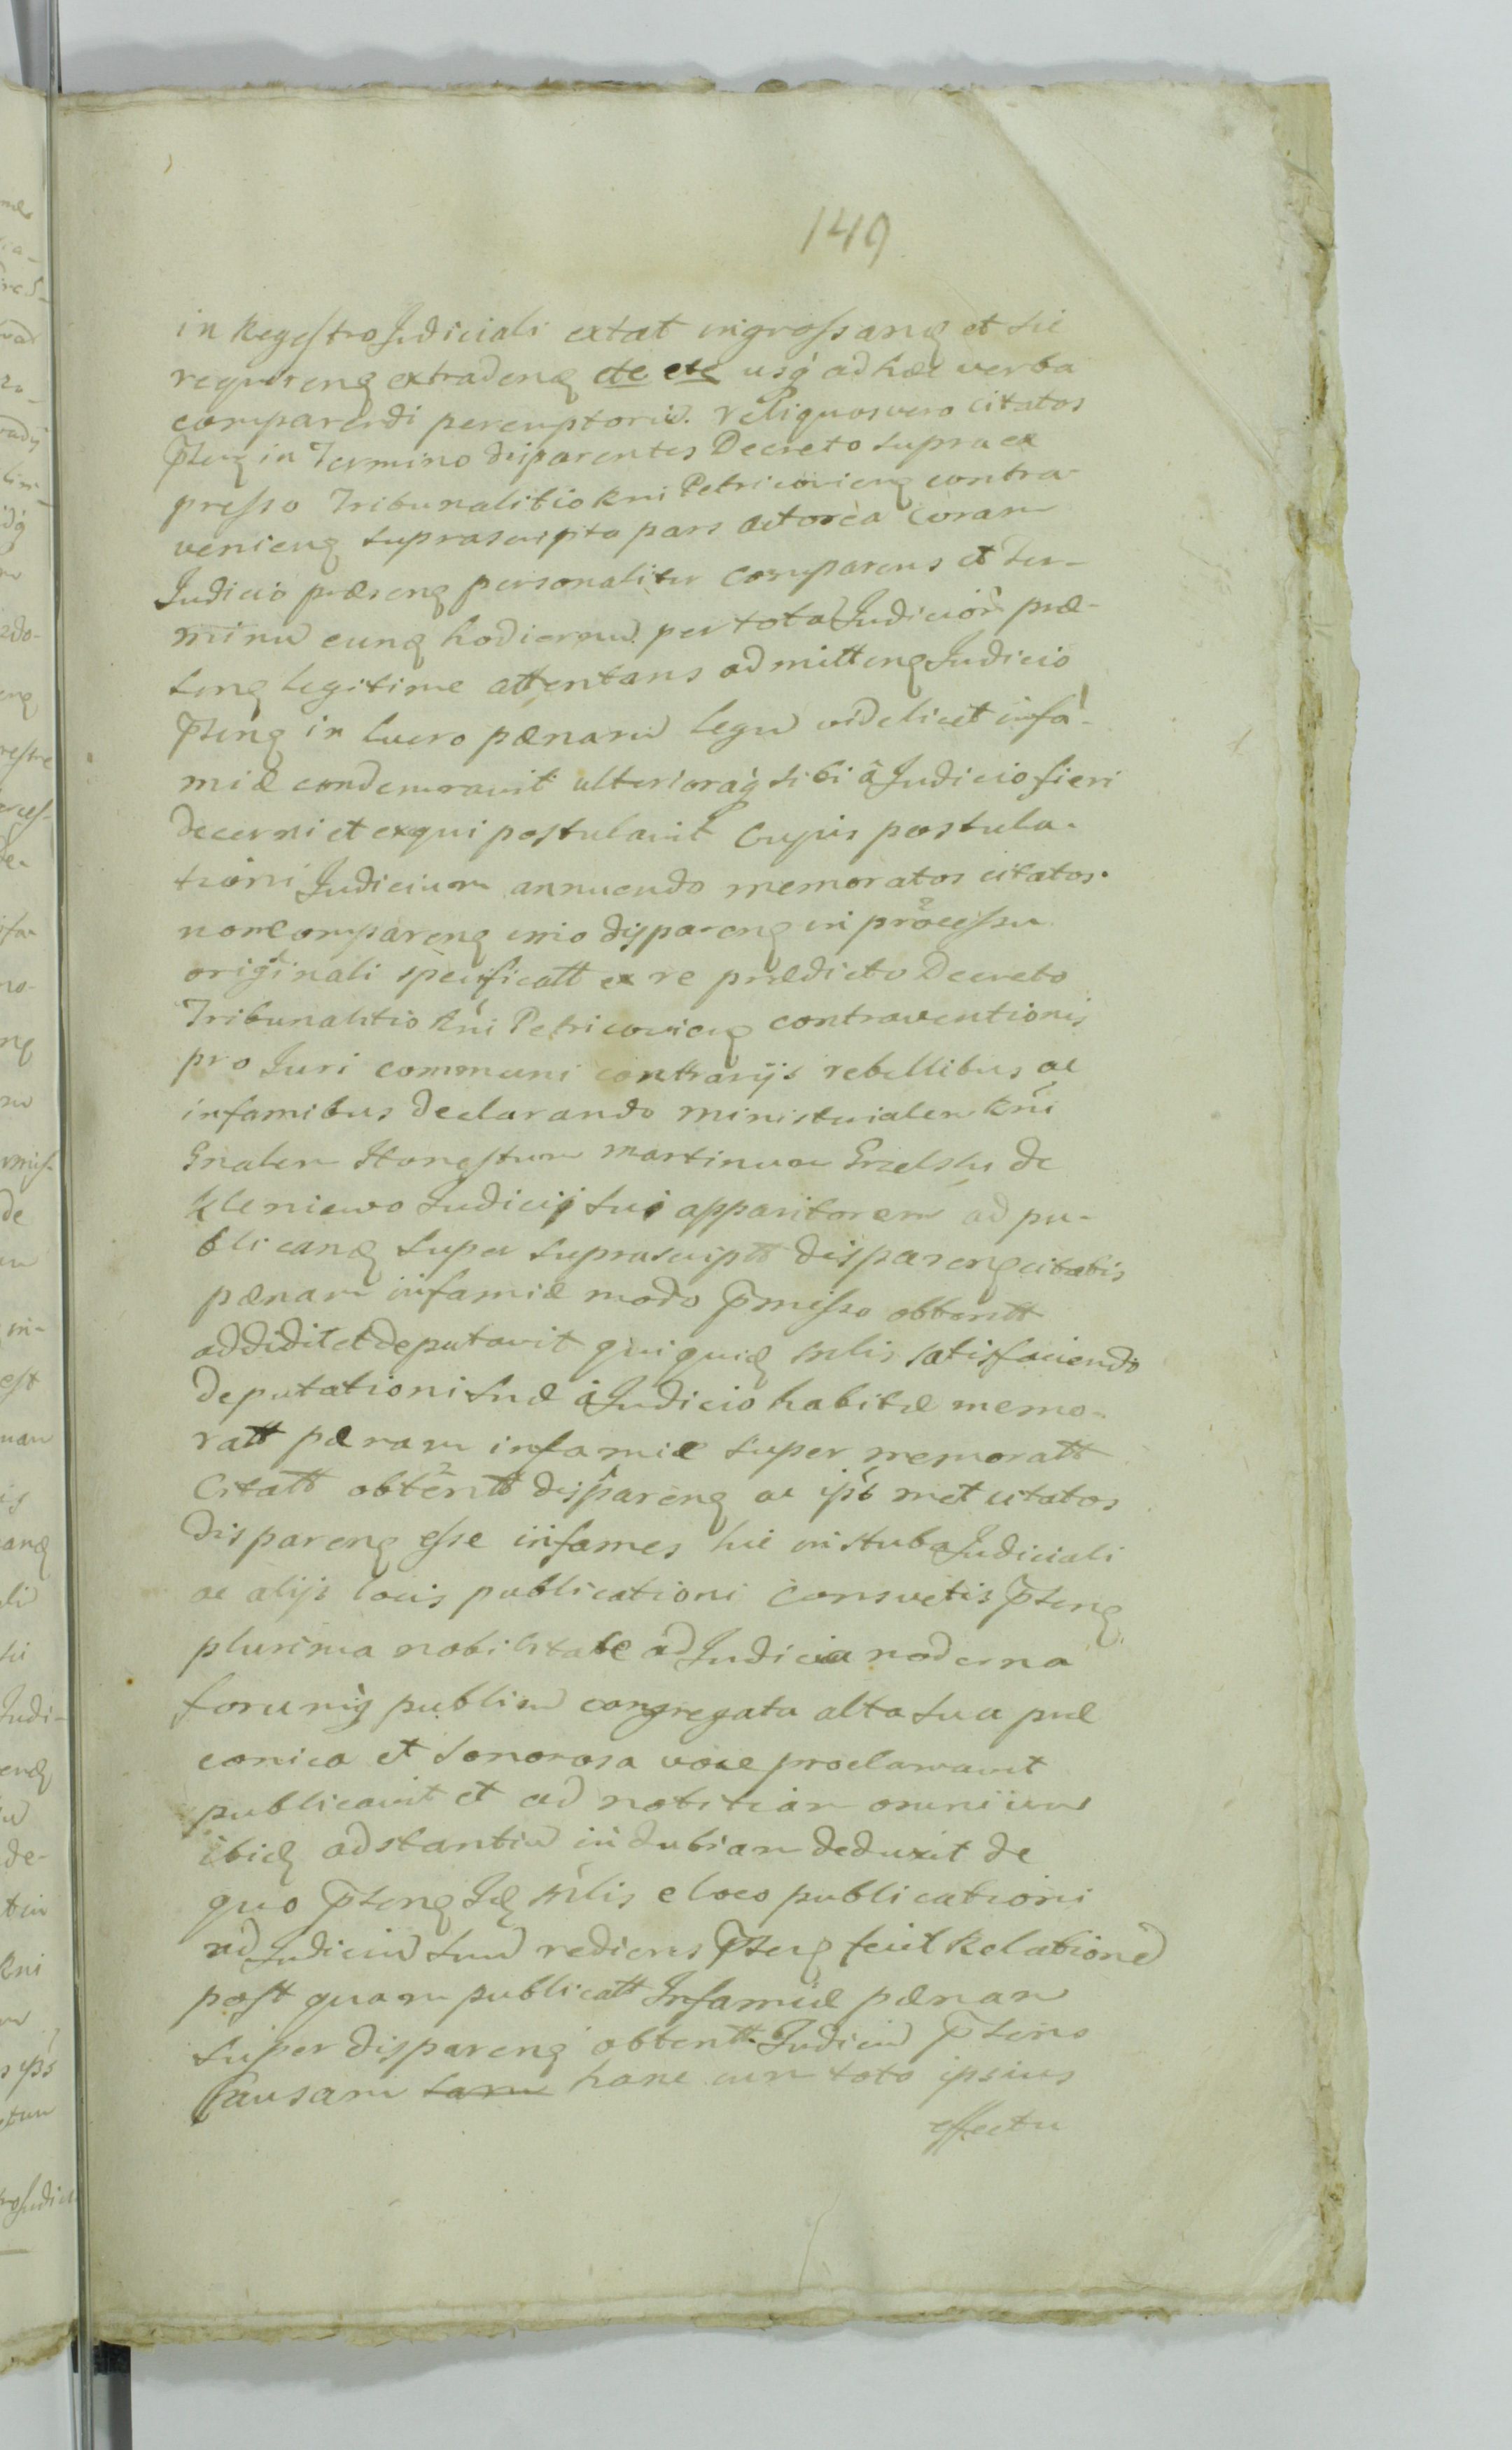 149
in Regestro Judiciali extat ingrossanđ et sic
requirenđ extradenđ etc etc usq̀ ad hæc verba
comparendi peremptorie. Reliquos vero citatos
P̄senđ in Termino disparentes Decreto supra ex
presso Tribunalitio Rni Petricovienđ contra
venienđ suprascripta pars actorea coram
Judicio præsenđ personaliter comparens et Ter-
minū eunđ hodiernū per tota Judiciorū præ-
senđ legitime attentans admittenđ Judicio
P̄senđ in lucro pænarū legū videlicet infa-
miæ condemnavit ulterioraq̀ sibi à Judicio fieri
decerni et exequi postulavit Cujus postula-
tioni Judicium annuendo memoratos citatos
non comparenđ imo disparenđ in processu
originali specificatt ex re prædicto Decreto
Tribunalitio Rni Petricovienđ contraventionis
pro Juri communi contrarijs rebellibus ac
infamibus declarando ministerialem Rni
Gnalem Honestum Martinum Grzelski de
Kleniewo Judicij sui apparitorem ad pu-
blicanđ super suprascriptt disparenđ citatis
pænam infamiæ modo p̄misso obtentt
addidit et deputavit qui quiđ mlis satisfaciendo
deputationi suæ à Judicio habitæ memo-
ratt pænam infamiæ super memoratt
Citatt obtentt disparenđ ac ipsos met citatos
disparenđ esse infames hic in stuba Judiciali
ac alijs locis publicationi consvetis P̄senđ
plurima nobilitate ad Judicia moderna
forumq̀ publicū congregata alta sua præ
conica et sonorosa voce proclamavit
publicavit et ad notitiam omnium
ibiđ adstantiū indubiam deduxit de
quo P̄senđ Iđ mlis e loco publicationi
ad Judiciū suū rediens P̄senđ fecit Relationē
post quam publicatt Infamiæ pænam
super disparenđ obtentt Judiciū P̄sens
Causam hanc cum toto ipsius
effectu